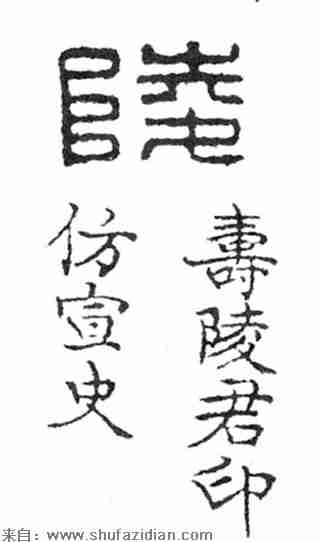 陵
壽陵君印
仿宣史
来自：www.shufazidian.com